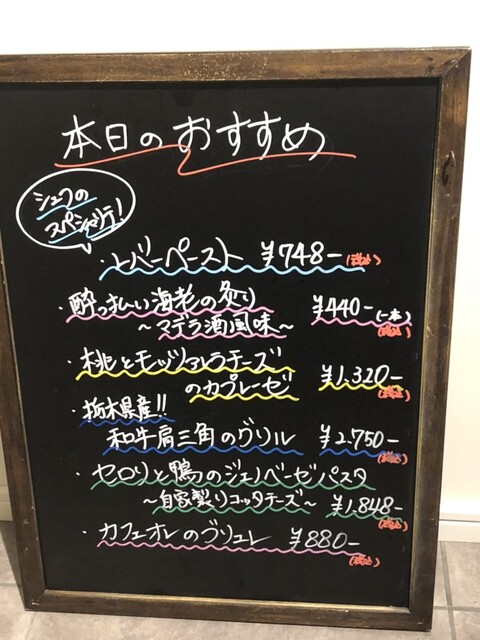 本日のおすすめ
シェフの
スペシャリテ!
・レバーペースト ¥748-(税込)
・酔っぱらい海老の炙り ¥440-(一本)
〜マデラ酒風味〜 (税込)
・桃とモッツァレラチーズ
のカプレーゼ ¥1,320-(税込)
・栃木県産!!
和牛肩三角のグリル ¥2,750-(税込)
・セロリと鴨のジェノベーゼパスタ
〜自家製リコッタチーズ〜 ¥1,848-(税込)
・カフェオレのブリュレ ¥880-(税込)